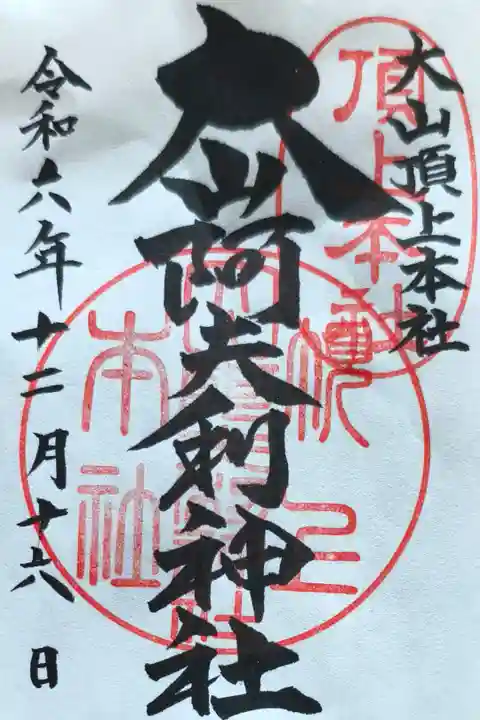 大山頂上本社
頂上本社
大山阿夫利神社
本社
令和六年十二月十六日